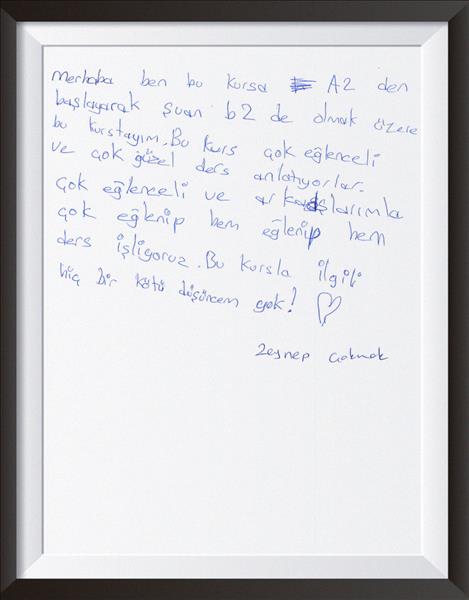 merhaba ben bu kursa A2 den
başlayarak şuan b2 de olmak üzere
bu kurstayım. Bu kurs çok eğlenceli
ve çok güzel ders anlatıyorlar.
Çok eğlenceli ve arkadaşlarımla
çok eğlenip hem eğlenip hem
ders işliyoruz. Bu kursla ilgili
hiç bir kötü düşüncem yok! ♡
Zeynep